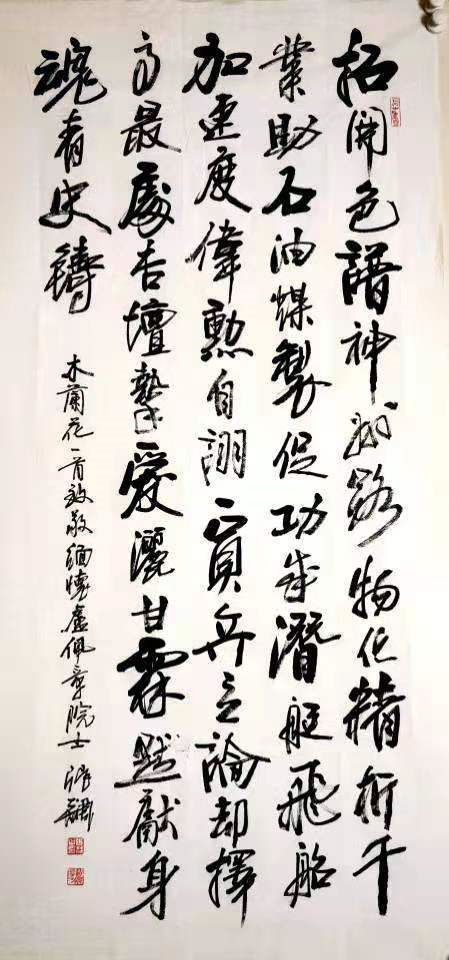 拓開色譜神州路物化精析千
業助石油煤製促功成潛艇飛船
加速度偉勳自詡一員兵立論却擇
高最處杏壇摯愛灑甘霖默獻身
魂青史鑄
木蘭花一首致敬緬懷盧佩章院士